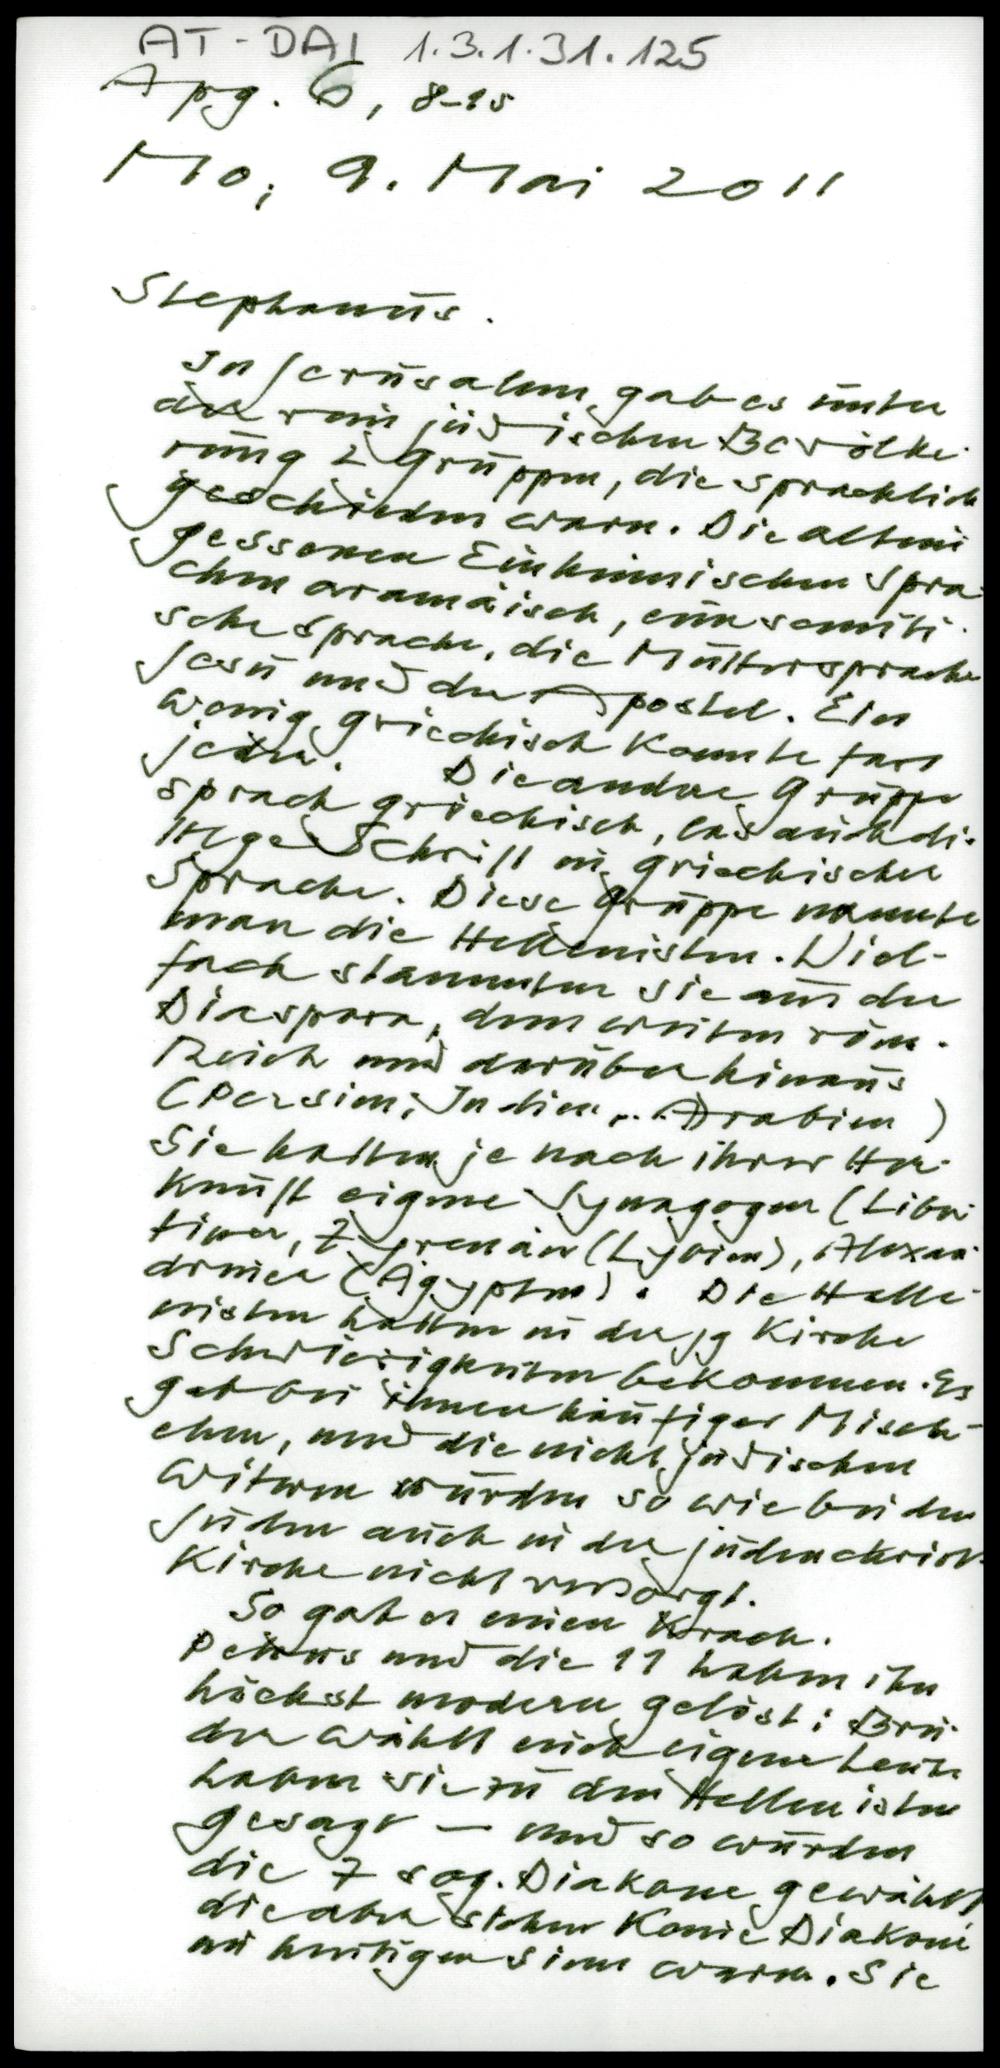 AT-DAI 1.3.1.31.125
Apg. 6, 8-15
Mo, 9. Mai 2011
Stephanus.
In Jerusalem gab es unter
der rein jüdischen Bevölke-
rung 2 Gruppen, die sprachlich
geschieden waren. Die altein
gessenen Einheimischen spra-
chen aramäisch, eine semiti-
sche Sprache, die Muttersprache
Jesu und der Apostel. Ein
wenig griechisch konnte fast
jeder. Die andere Gruppe
sprach griechisch, las auch die
Hlge Schrift in griechischer
Sprache. Diese Gruppe nannte
man die Hellenisten. Viel-
fach stammten sie aus der
Diaspora, dem weiten röm.
Reich und darüber hinaus
(Persien, Indien... Arabien)
Sie hatten je nach ihrer Her-
kunft eigene Synagogen (Liber-
tiner, Zyrenäer (Lybien), Alexan-
driner (Ägypten). Die Helle-
nisten hatten in der jg Kirche
Schwierigkeiten bekommen. Es
gab bei ihnen häufiger Misch-
ehen, und die nicht jüdischen
Witwen wurden so wie bei den
Juden auch in der judenchristl
Kirche nicht versorgt.
So gab es einen Krach.
Petrus und die 11 haben ihn
höchst modern gelöst: Brü-
der wählt euch eigene Leute
haben sie zu den Hellenisten
gesagt — und so wurden
die 7 sog. Diakone gewählt
die aber sicher keine Diakone
im heutigen Sinn waren. Sie